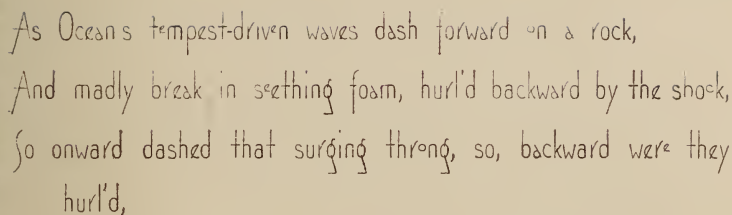 As Oceans tempest-driven waves dash forward on a rock,
And madly break in seething foam, hurl'd backward by the shock,
So onward dashed that surging throng, so, backward were they
hurl'd,